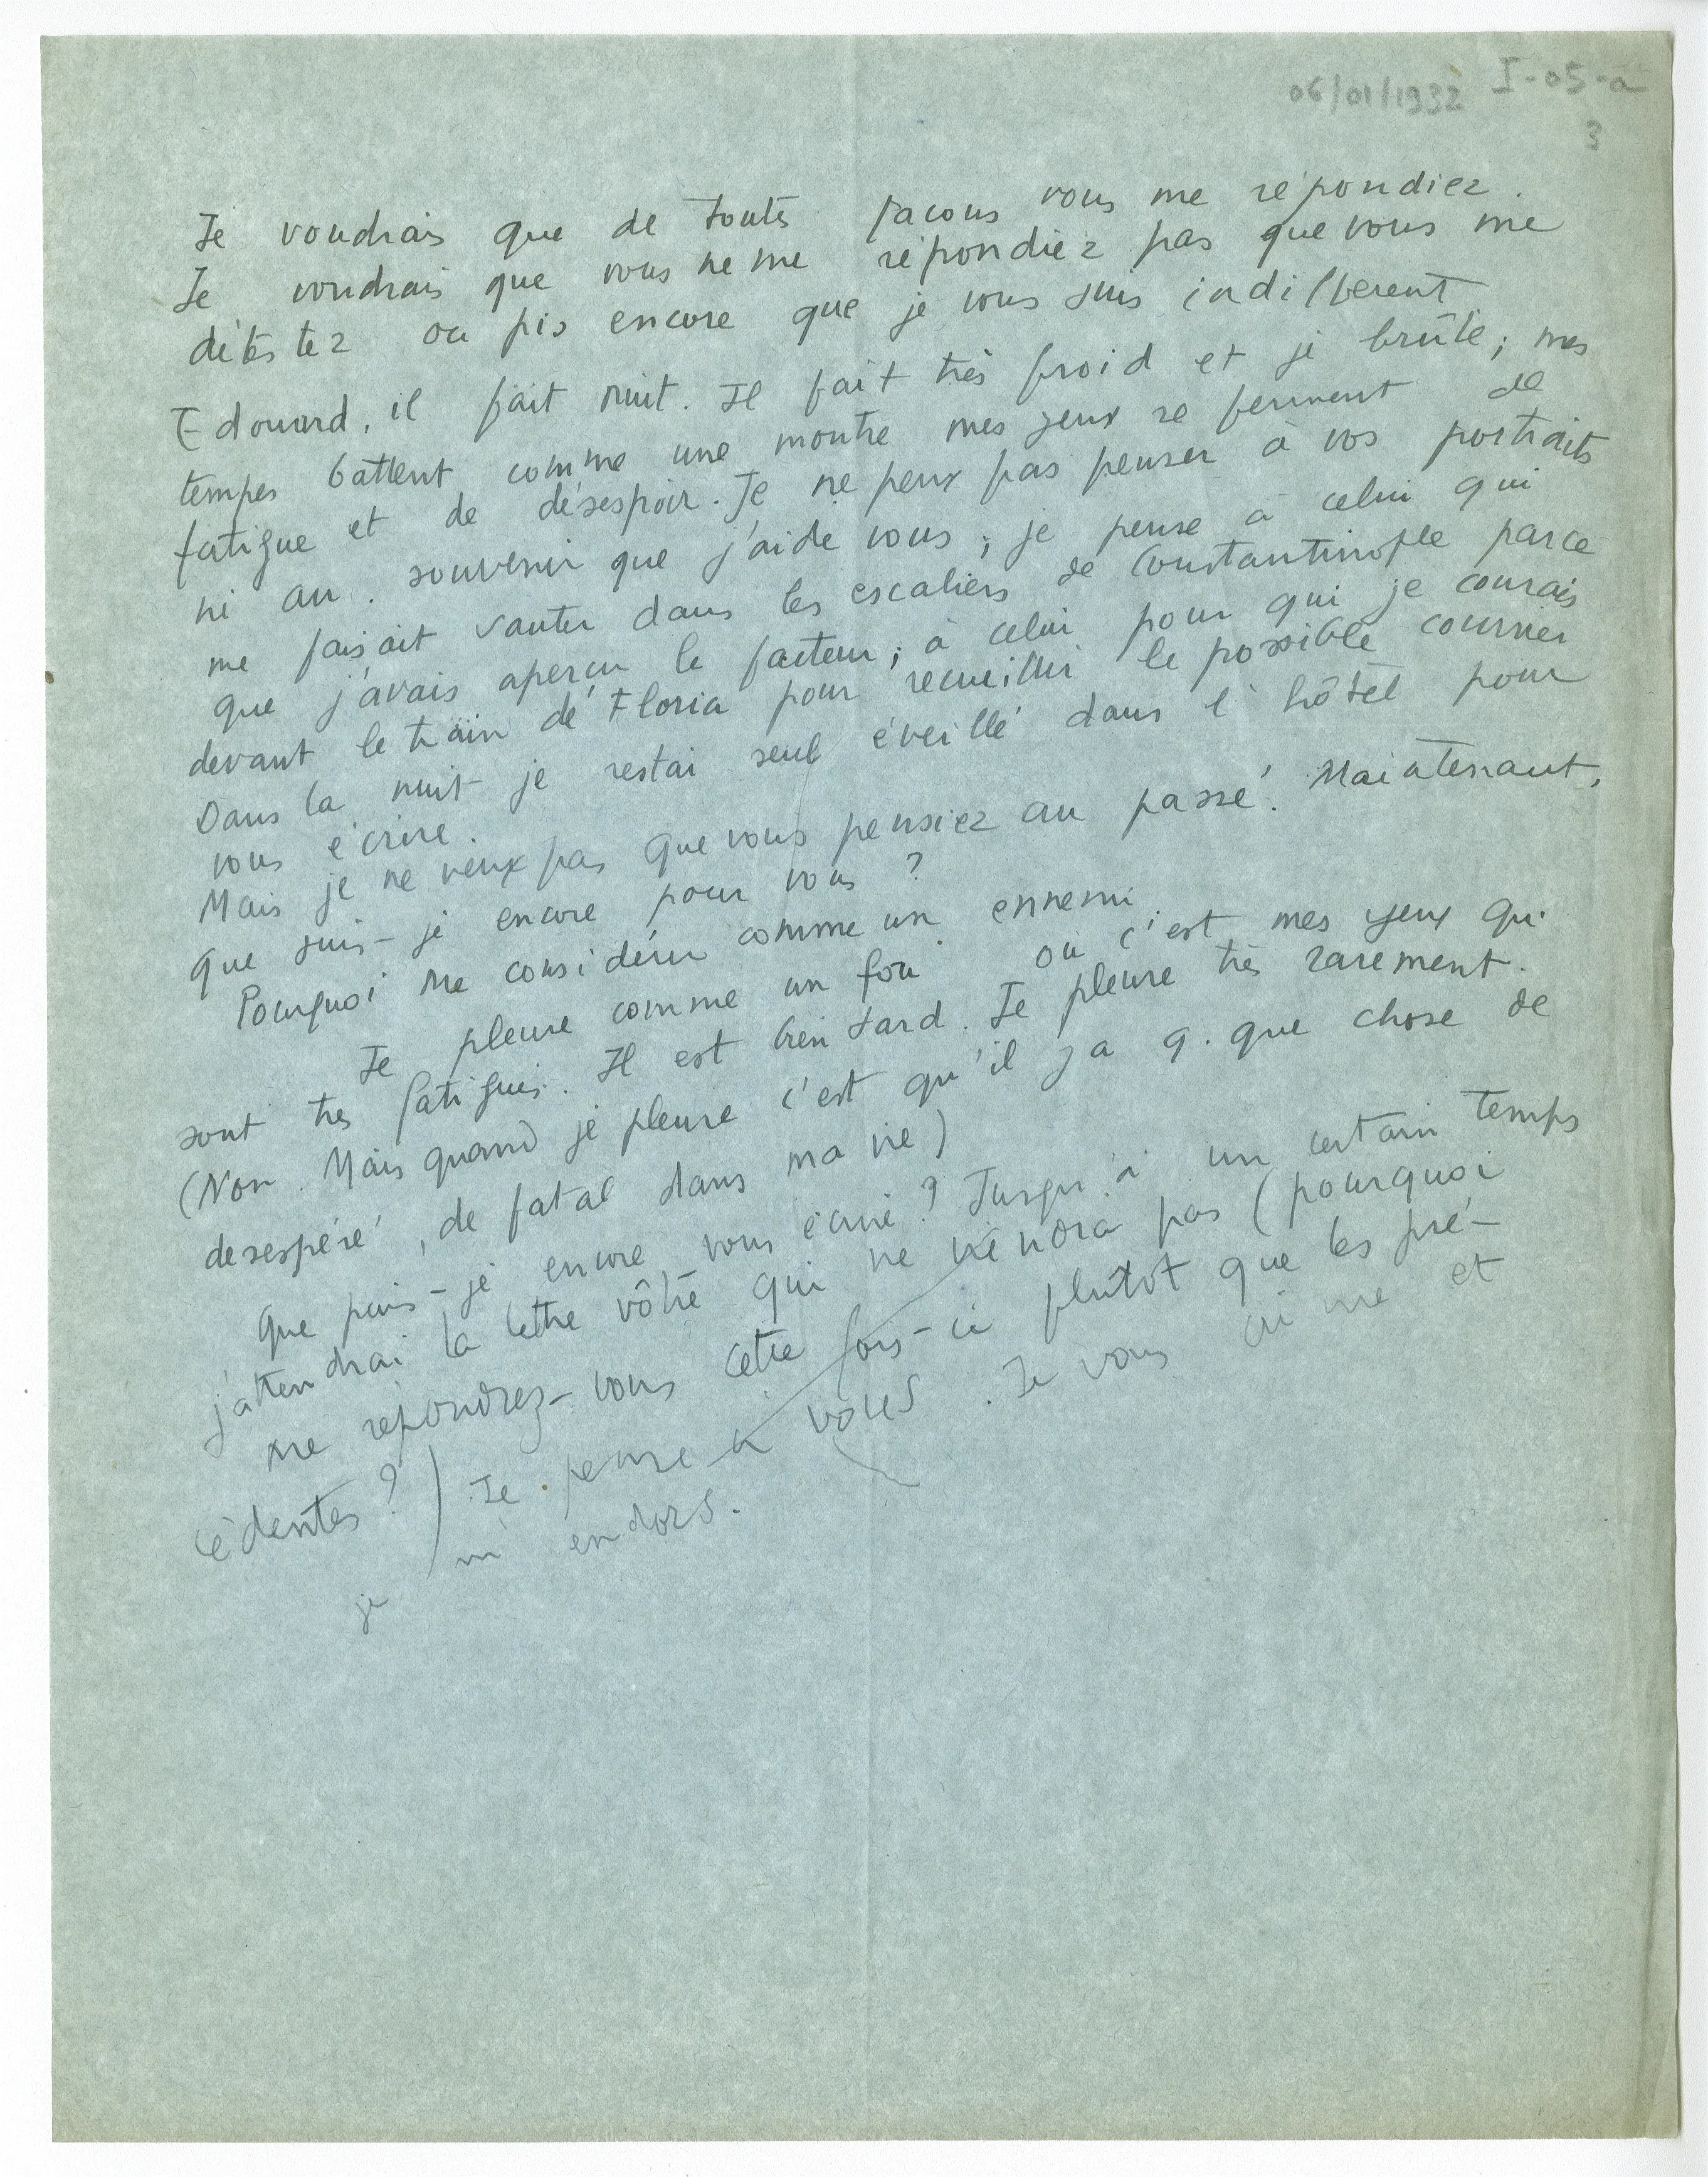 06/01/1932 I-05-a
3
Je voudrais que de toutes façons vous me répondiez.
Je voudrais que vous ne me répondiez pas que vous me
détestez ou pis encore que je vous suis indifférent
Edouard, il fait nuit. Il fait très froid et je brûle; mes
tempes battent comme une montre mes yeux se ferment de
fatigue et de désespoir. Je ne peux pas penser à vos portraits
ni au souvenir que j'ai de vous; je pense à celui qui
me faisait sauter dans les escaliers de Constantinople parce
que j'avais aperçu le facteur; à celui pour qui je courais
devant le train de Floria pour recueillir le possible courrier
Dans la nuit je restai seul éveillé dans l'hôtel pour
vous écrire.
Mais je ne veux pas que vous pensiez au passé. Maintenant,
que suis-je encore pour vous?
Pourquoi me considérer comme un ennemi.
Je pleure comme un fou ou c'est mes yeux qui
sont très fatigués. Il est bien tard. Je pleure très rarement.
(Non. Mais quand je pleure c'est qu'il y a q. que chose de
desespéré, de fatal dans ma vie)
Que puis-je encore vous écrire? Jusqu'à un certain temps
j'attendrai la lettre vôtre qui ne viendra pas (pourquoi
me répondrez-vous cette fois-ci plutôt que les pré-
cédentes?) Je pense à vous. Je vous aime et
je m'endors.